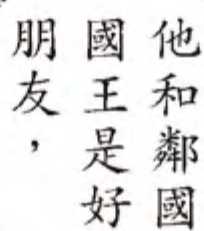 他和鄰國
國王是好
朋友，